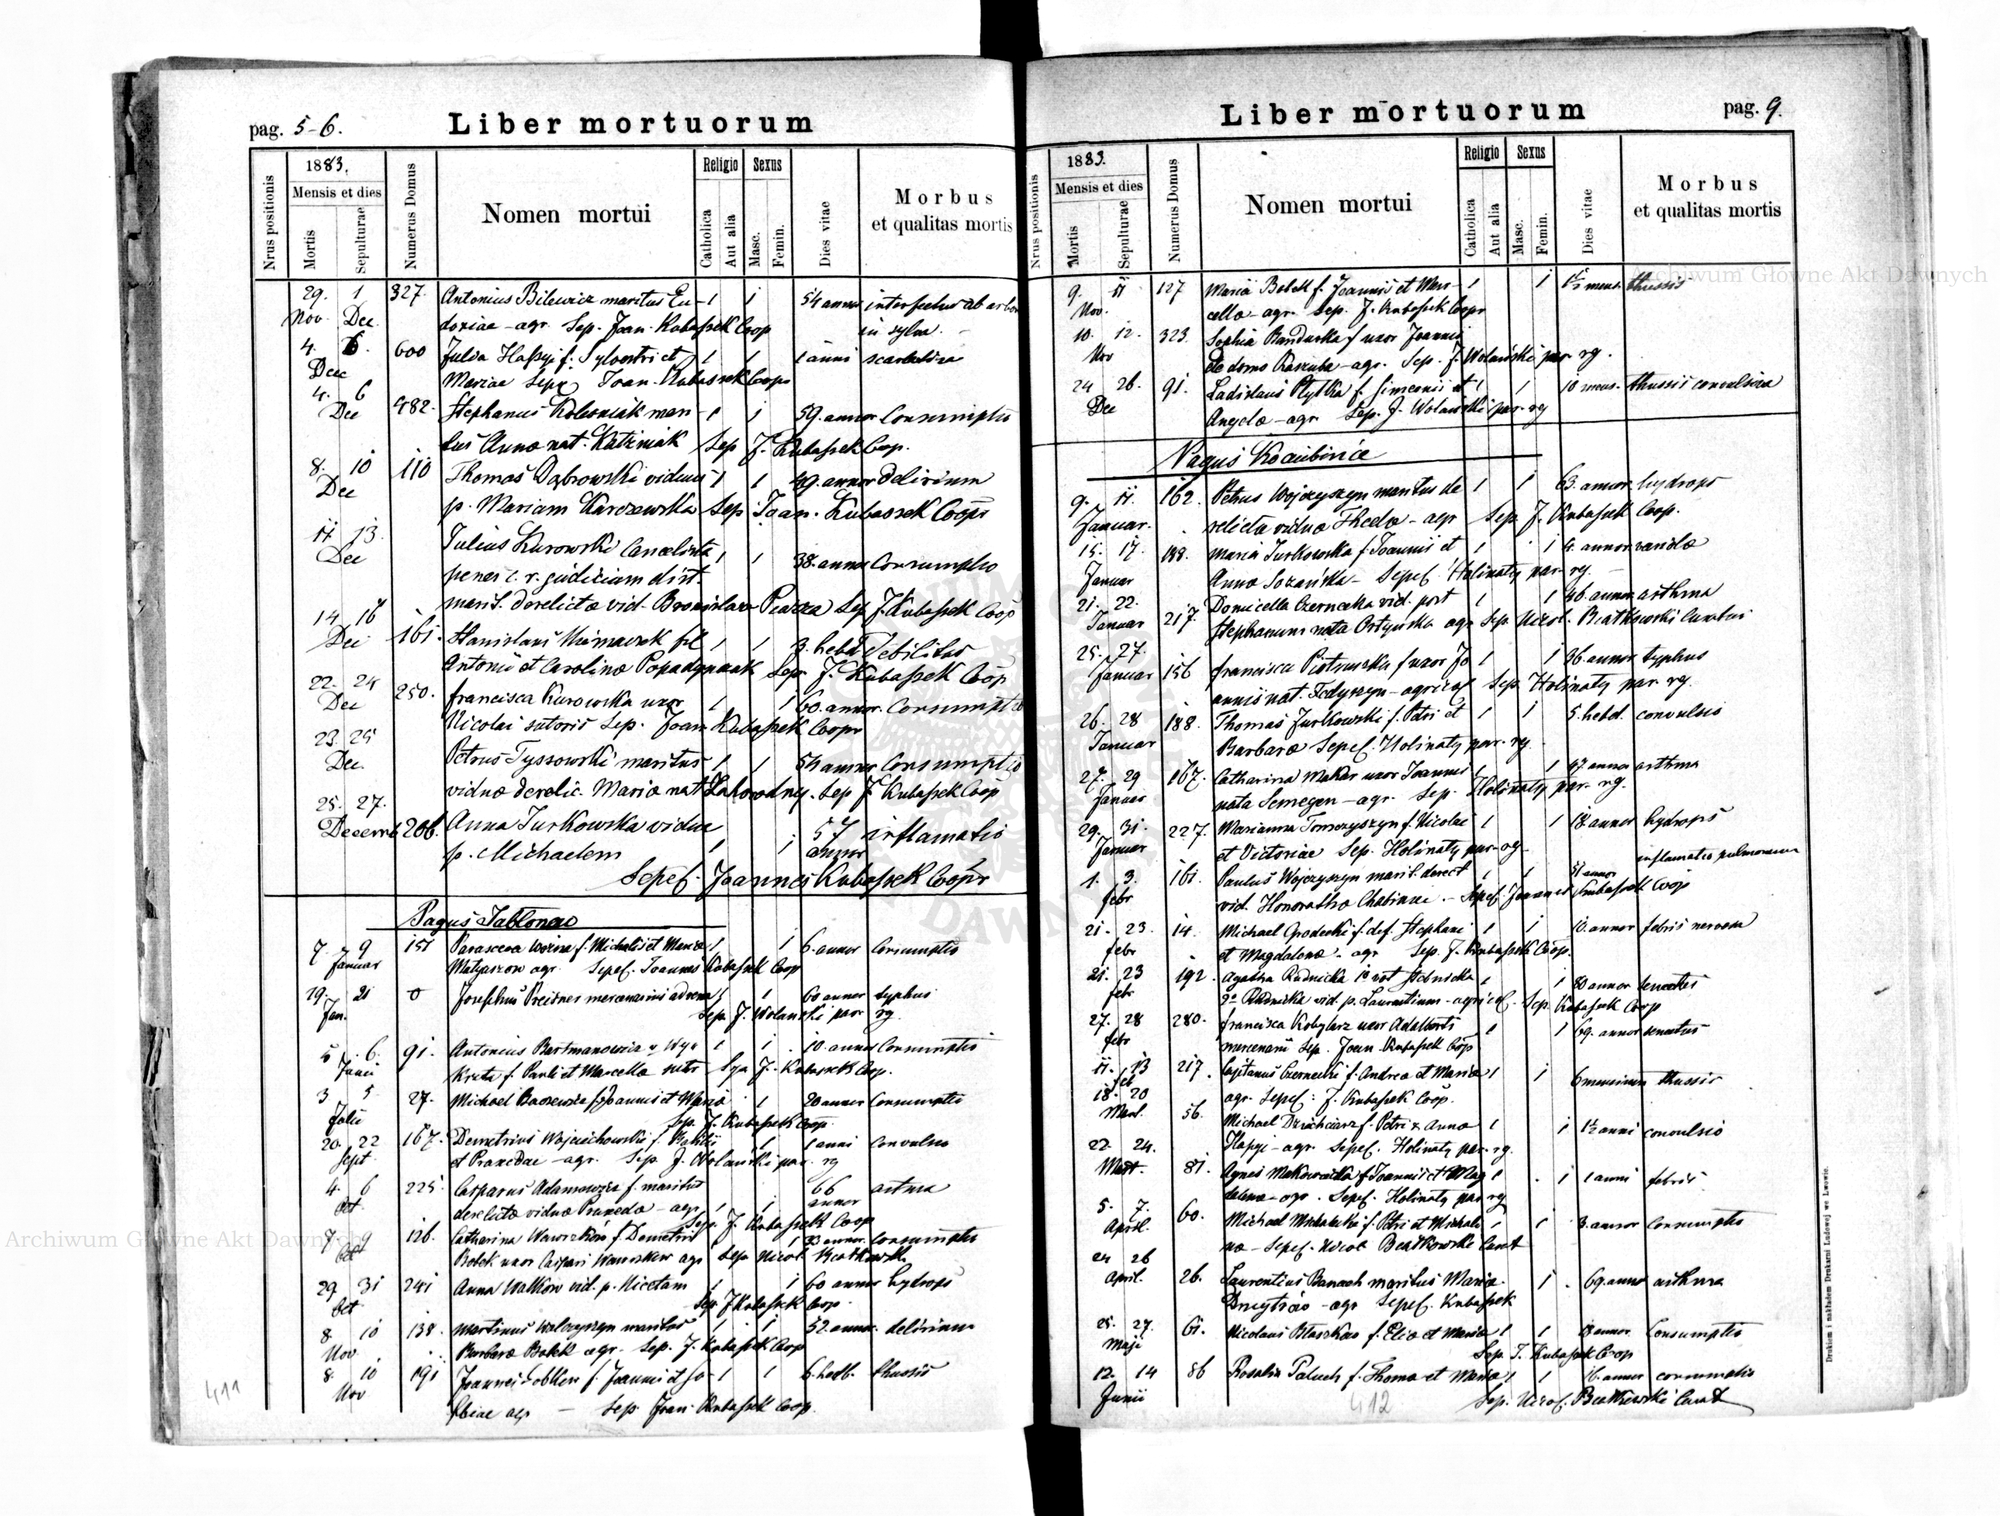 pag. 5-6.
Liber mortuorum
Nrus positionis
1883.
Mensis et dies
Mortis
Sepulturae
Numerus Domus
Nomen mortui
Religio
Catholica
Aut alia
Sexus
Masc.
Femin.
Dies vitae
Morbus
et qualitas mortis
29. 1 327. Antonius Bilewicz maritus Eu- 1 1 54 annor interfectus ab arbore
Nov. Dec. doxiae - agr. Sep. Joan. Kubassek Coop in sylva.
4. 6. 600 Julia f. Sylvestri et 1 1 1 anni scarlatina
Dec Mariae Sep. Joan. Kubassek Coop
4. 6 482. Stephanus Kolesniak mari- 1 1 59. annor Consumptio
Dec tus Annae nat. Sep J. Kubassek Coop.
8. 10 110 Thomas Dąbrowski viduus 1 1 49. annor delirium
Dec p. Mariam Karczewska Sep Joan. Kubassek Coopr
11 13. Julius Kurowski Cancelista 1 1 38. annor Consumptio
Dec penes c. r. judicium dist.
marit. derelictae vid. Bronislavae Sep J. Kubassek Coop
14 16 161. Stanislaus fil 1 1 3. hebd Debilitas
Dec Antonii et Carolinae Sep. J. Kubassek Coop
22. 24 250. Francisca Kurowska uxor 1 1 60. annor. Consumptio
Dec Nicolai sutoris Sep. Joan Kubassek Coopr
23. 25 Petrus Tyssowski maritus 1 1 54 annor Consumptio
Dec. viduae derelic. Mariae nat Zahorodny. Sep J Kubassek Coop
25. 27. 206. Anna Turkowska vidua 1 1 57 inflamatio
Decemb p. Michaelem annor
Sepel. Joannes Kubassek Coopr
Pagus Jabłonów
7 9 151 Parasceva f. Michaelis et Mariae 1 1 6. annor Consumptio
Januar agr. Sepel. Joannes Kubassek Coop
19. 21 0 Josephus mercenarius advena 1 1 60 annor typhus
Jan. Sep. J. Wolański par rg.
5 6. 91. Antonius Bartmanowicz v. Wy- 1 1 10. annor Consumptio
Junii f. Pauli et Marcellae Sep J. Kubassek Coop.
3 5 27. Michael f. Joannis et Maria 1 20 annor Consumptio
Julii Sep. J. Kubassek Coop
20. 22 167. Demetrius Wojciechowski f. 1 1 anni Convulsio
Sept. et Praxedae - agr. Sep. J. Wolański par. rg
4. 6 225. Casparus Adamowicz f. maritus 66 astma
Oct derelictae viduae Praxedae - agr 1 1 annor
Sep. J. Kubassek Coop
7 9 126. Catharina f. Demetrii 1 33 annor. Consumptio
Oct Bobek uxor Caspari agr Sep Nicol. Beatkowski
29. 31 241 Anna Walkow vid. p. Nicetam 1 1 60 annor hydrops
Oct Sep. J Kubassek Coop.
8. 10 138. Martinus maritus 1 1 52. annor. delirium
Nov Barbarae Bobek agr. Sep. J. Kubassek Coop
8. 10 191 Joannes f. Joannis et So- 1 1 6. hebd. thussis
Nov phiae agr - Sep. Joan Kubassek Coop.
411
Liber mortuorum
pag. 9.
Nrus positionis
1883.
Mensis et dies
Mortis
Sepulturae
Numerus Domus
Nomen mortui
Religio
Catholica
Aut alia
Sexus
Masc.
Femin.
Dies vitae
Morbus
et qualitas mortis
9. 11 127 Maria Bobek f. Joannis et Mar- 1 1 1½ mens thussis
Nov. cellae - agr. Sep. J. Kubassek Coopr
10. 12. 323. Sophia Bandurka f uxor Joannis
Nov de domo - agr. Sep. J. Wolański par. rg.
24 26. 91. Ladislaus Płytka f. Simeonis et 1 1 10 mens. thussis convulsiva
Dec Angelae - agr Sep. J. Wolański par. rg
Pagus Kociubińce
9. 11. 162. Petrus Wojczyszyn maritus de 1 1 63. annor. hydrops
Januar. relictae viduae Theclae - agr Sep. J. Kubassek Coop.
15. 17. 188. Maria Turkowska f. Joannis et 1 1 4. annor variolae
Januar Annae Sozańska - Sepel. Holinaty par. rg.
21. 22. 217. Domicella Czernecka vid. post 1 1 46. annor asthma
Januar Stephanum nata Ortyńska agr Sep. Nicol. Beatkowski Curatus
25. 27. 156 Francisca Piotrowska f uxor Jo 1 1 36. annor typhus
Januar annis nat. Fedyszyn - agricol Sep. Holinaty par. rg.
26. 28 188. Thomas Jurkowski f. Petri et 1 1 5. hebd. convulsio
Januar Barbarae Sepel. Holinaty par. rg.
27. 29 167. Catharina Makar uxor Joannis 1 1 47 annor asthma
Januar nata Semegen - agr. Sep. Holinaty par. rg.
29. 31. 227. Marianna Tomczyszyn f. Nicolai 1 1 18 annor hydrops
Januar et Victoriae Sep. Holinaty par. rg
1. 3. 161. Paulus Wojczyszyn marit. derelict 1 1 annor inflamatio pulmonum
febr vid. Honorathae - Sepel. Joannes Kubassek Coop
21. 23. 14. Michael Grodecki f. def. Stephani 1 1 10 annor febris nervosa
febr et Magdalenae - agr Sep. J. Kubassek Coop.
21. 23 192. Agatha Rudnicka 1o vot 1 1 80 annor senectus
febr 2o Rudnicka vid. p. Laurentium - agricol. Sep. Kubassek Coop
27. 28 280. Francisca Kobylarz uxor Adalberti 1 1 69. annor senectus
febr mercenarii Sep. Joan Kubassek Coop
11. 13 217. Cajetanus Czernecki f. Andreae et Mariae 1 1 6 mensium thussis
feb agr. Sepel. J. Kubassek Coop.
18. 20 56. Michael f. Petri & Anna 1 1 1½ anni convulsio
Mart. - agr. Sepel. Holinaty par. rg.
22. 24. 81. Agnes f. Joannis et Mag 1 1 1 anni febris
Mart. dalenae - agr. Sepel. Holinaty par rg
5. 7. 60. Michael f. Petri et Michali 1 1 3. annor Consumptio
April. nae - Sepel. Nicol Beatkowski Curat
24 26 26. Laurentius Banach maritus Mariae 1 69. annor asthma
April. - agr Sepel. Kubassek
25. 27. 61. Nicolaus f. Eliae et Mariae 1 1 18 annor. Consumptio
Maji Sep. J. Kubassek Coop
12. 14 86 Rosalia Paluch f. Thomae et Mariae 1 1 16. annor consumptio
Junii Sep. Nicol. Beatkowski Curat
412
Drukiem i nakładem Drukarni Ludowej we Lwowie.
Archiwum Główne Akt Dawnych
Archiwum Główne Akt Dawnych